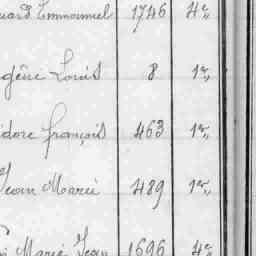 Emmanuel 1746 4e
Louis 8 1er
François 463 1er
Jean Marie 489 1er
Marie Jean 1696 4e